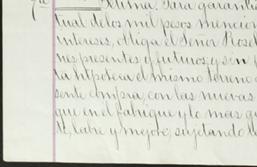 7a Ultima. Para garanti
tual de los mil pesos mencion
intereses, obliga el Señor Rosel
nes presentes y futuros, y sin p
la hipoteca el mismo terreno o
sente compra, con las nuevas
que en el fabrique y lo mas qu
te, labre y mejore, sujetando l